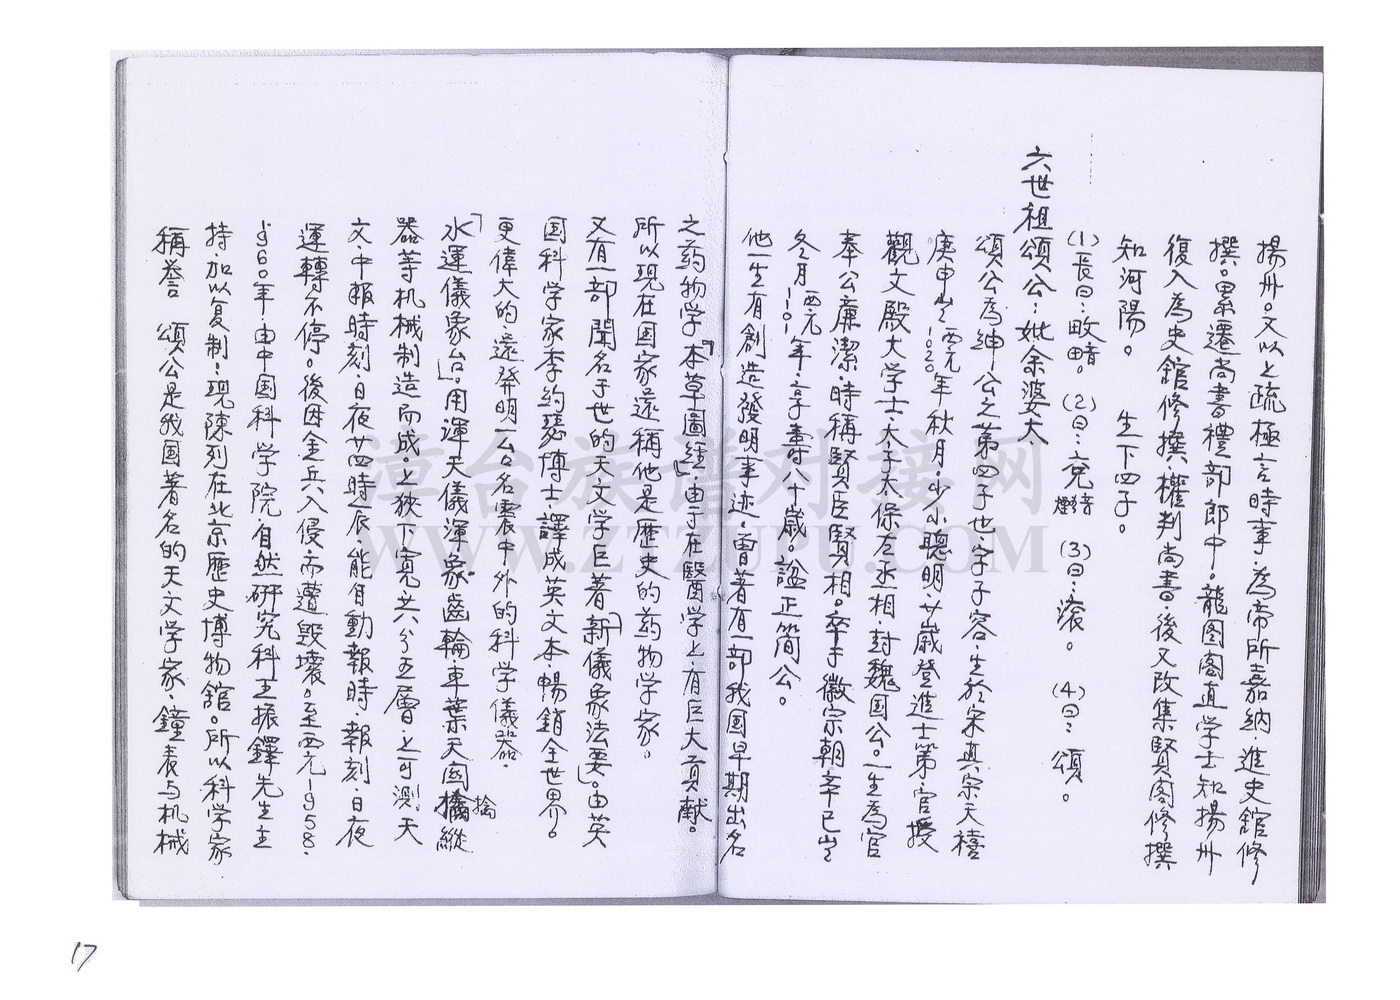 揚州。又以上疏極言時事、為帝所嘉納、進史館修
撰。累遷尚書禮部郎中。龍图阁直学士知揚州
復入為史館修撰、權判尚書、後又改集賢阁修撰
知河陽。 生下四子。
(1)長曰：畋暗。(2)曰：兗 音 (3)曰：滚。 (4)曰：頌。
六世祖頌公：妣余婆太
頌公為紳公之第四子也、字子容、生於宋真宗天禧
庚申岁西元1020年秋月、少小聰明、廿歲登進士第、官授
觀文殿大学士、太子太保左丞相、封魏国公。一生為官
奉公廉潔、時稱賢臣賢相。卒于徽宗朝辛巳岁
冬月西元1101年、享壽八十歲。諡正簡公。
他一生有創造發明事迹。曾著有一部我国早期出名
之药物学「本草圖經」、由于在醫学上、有巨大貢献。
所以現在国家還稱他是歷史的药物学家。
又有一部聞名于世的天文学巨著「新儀象法要」。由英
国科学家李約瑟博士、譯成英文本、暢銷全世界。
更偉大的、還發明一台名震中外的科学儀器、
「水運儀象台」。用渾天儀渾象、齒輪車葉天
擒縱
器等机械制造而成。上狹下寬、共分五層、上可測天
文、中報時刻、日夜廿四時辰、能自動報時、報刻、日夜
運轉不停。後因金兵入侵而遭毀壞。至西元1958、
1960年由中国科学院、自然研究科王振鐸先生主
持、加以复制、現陳列在北京歷史博物館。所以科学家
稱誉 頌公是我国著名的天文学家、鐘表与机械
漳台族谱对接网
WWW.ZTZUPU.COM
17